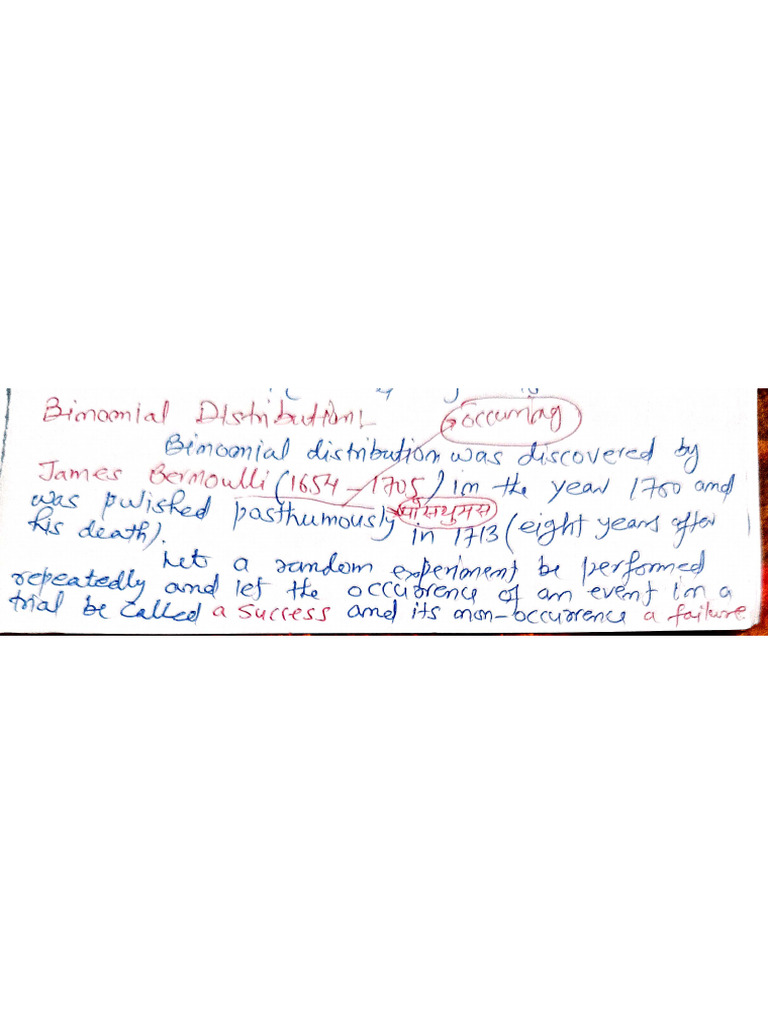 Binomial Distribution:
occuring
Binomial distribution was discovered by
James Bernoulli (1654 – 1705) in the year 1700 and
was pulished posthumously पोसथुमस in 1713 (eight years after
his death).
Let a random experiment be performed
repeatedly and let the occurrence of an event in a
trial be called a success and its non-occurrence a failure